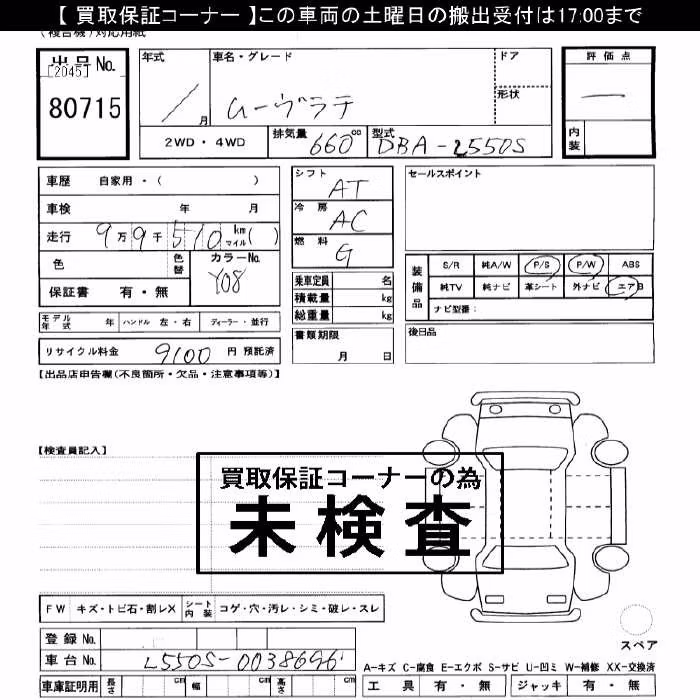 【 買取保証コーナー 】この車両の土曜日の搬出受付は17:00まで
(複合機)対応用紙
出品No.
[2045]
80715
年式 車名・グレード ドア
/ 月 ムーヴラテ 形状
2WD・4WD 排気量 660 cc 型式 DBA-L550S
評価点
—
内装
車歴 自家用・( )
車検 年 月
走行 9万9千510 km マイル( )
色 色替 カラーNo. Y08
保証書 有・無
モデル年式 年 ハンドル 左・右 ディーラー・並行
リサイクル料金 9100 円 預託済
シフト AT
冷房 AC
燃料 G
乗車定員 名
積載量 kg
総重量 kg
書類期限 月 日
セールスポイント
装備品
S/R 純A/W P/S P/W ABS
純TV 純ナビ 革シート 外ナビ エアB
ナビ型番:
後日品
【出品店申告欄(不良箇所・欠品・注意事項等)】
【検査員記入】
買取保証コーナーの為
未検査
FW キズ・トビ石・割レX シート内装 コゲ・穴・汚レ・シミ・破レ・スレ
登録No.
車台No. L550S-0038696
車庫証明用 長さ cm 幅 cm 高さ cm
スペア
A-キズ C-腐食 E-エクボ S-サビ U-凹ミ W-補修 XX-交換済
工具 有・無 ジャッキ 有・無